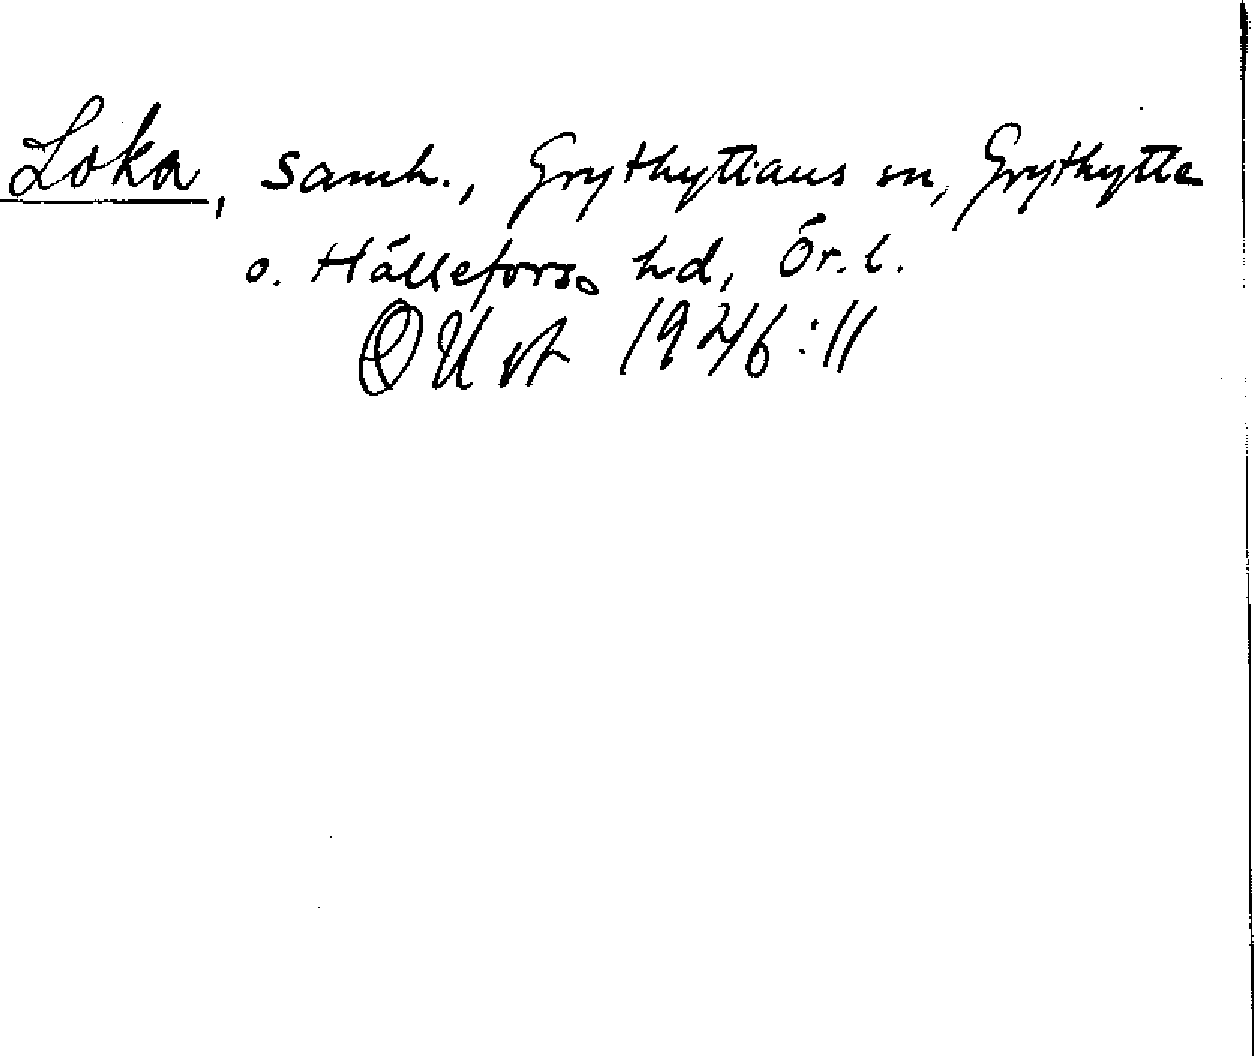 Loka, samh., Grythyttans sn, Grythytte
o. Hällefors hd, Ör. l.
OU st 1946:11